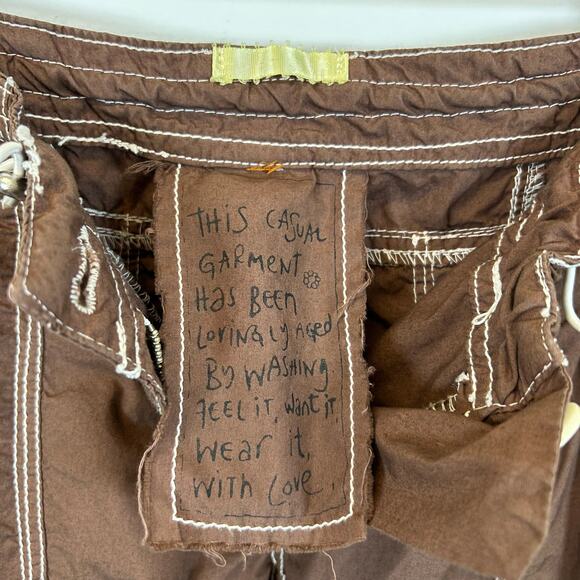 THIS CASUAL
GARMENT
HAS BEEN
LOVINGLY AGED
BY WASHING
FEEL IT, WANT IT,
WEAR IT,
WITH LOVE.